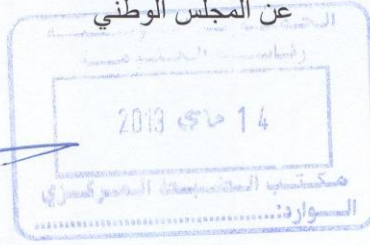 عن المجلس الوطني
14 ماي 2013
مكتب الضبط المركزي
الوارد: